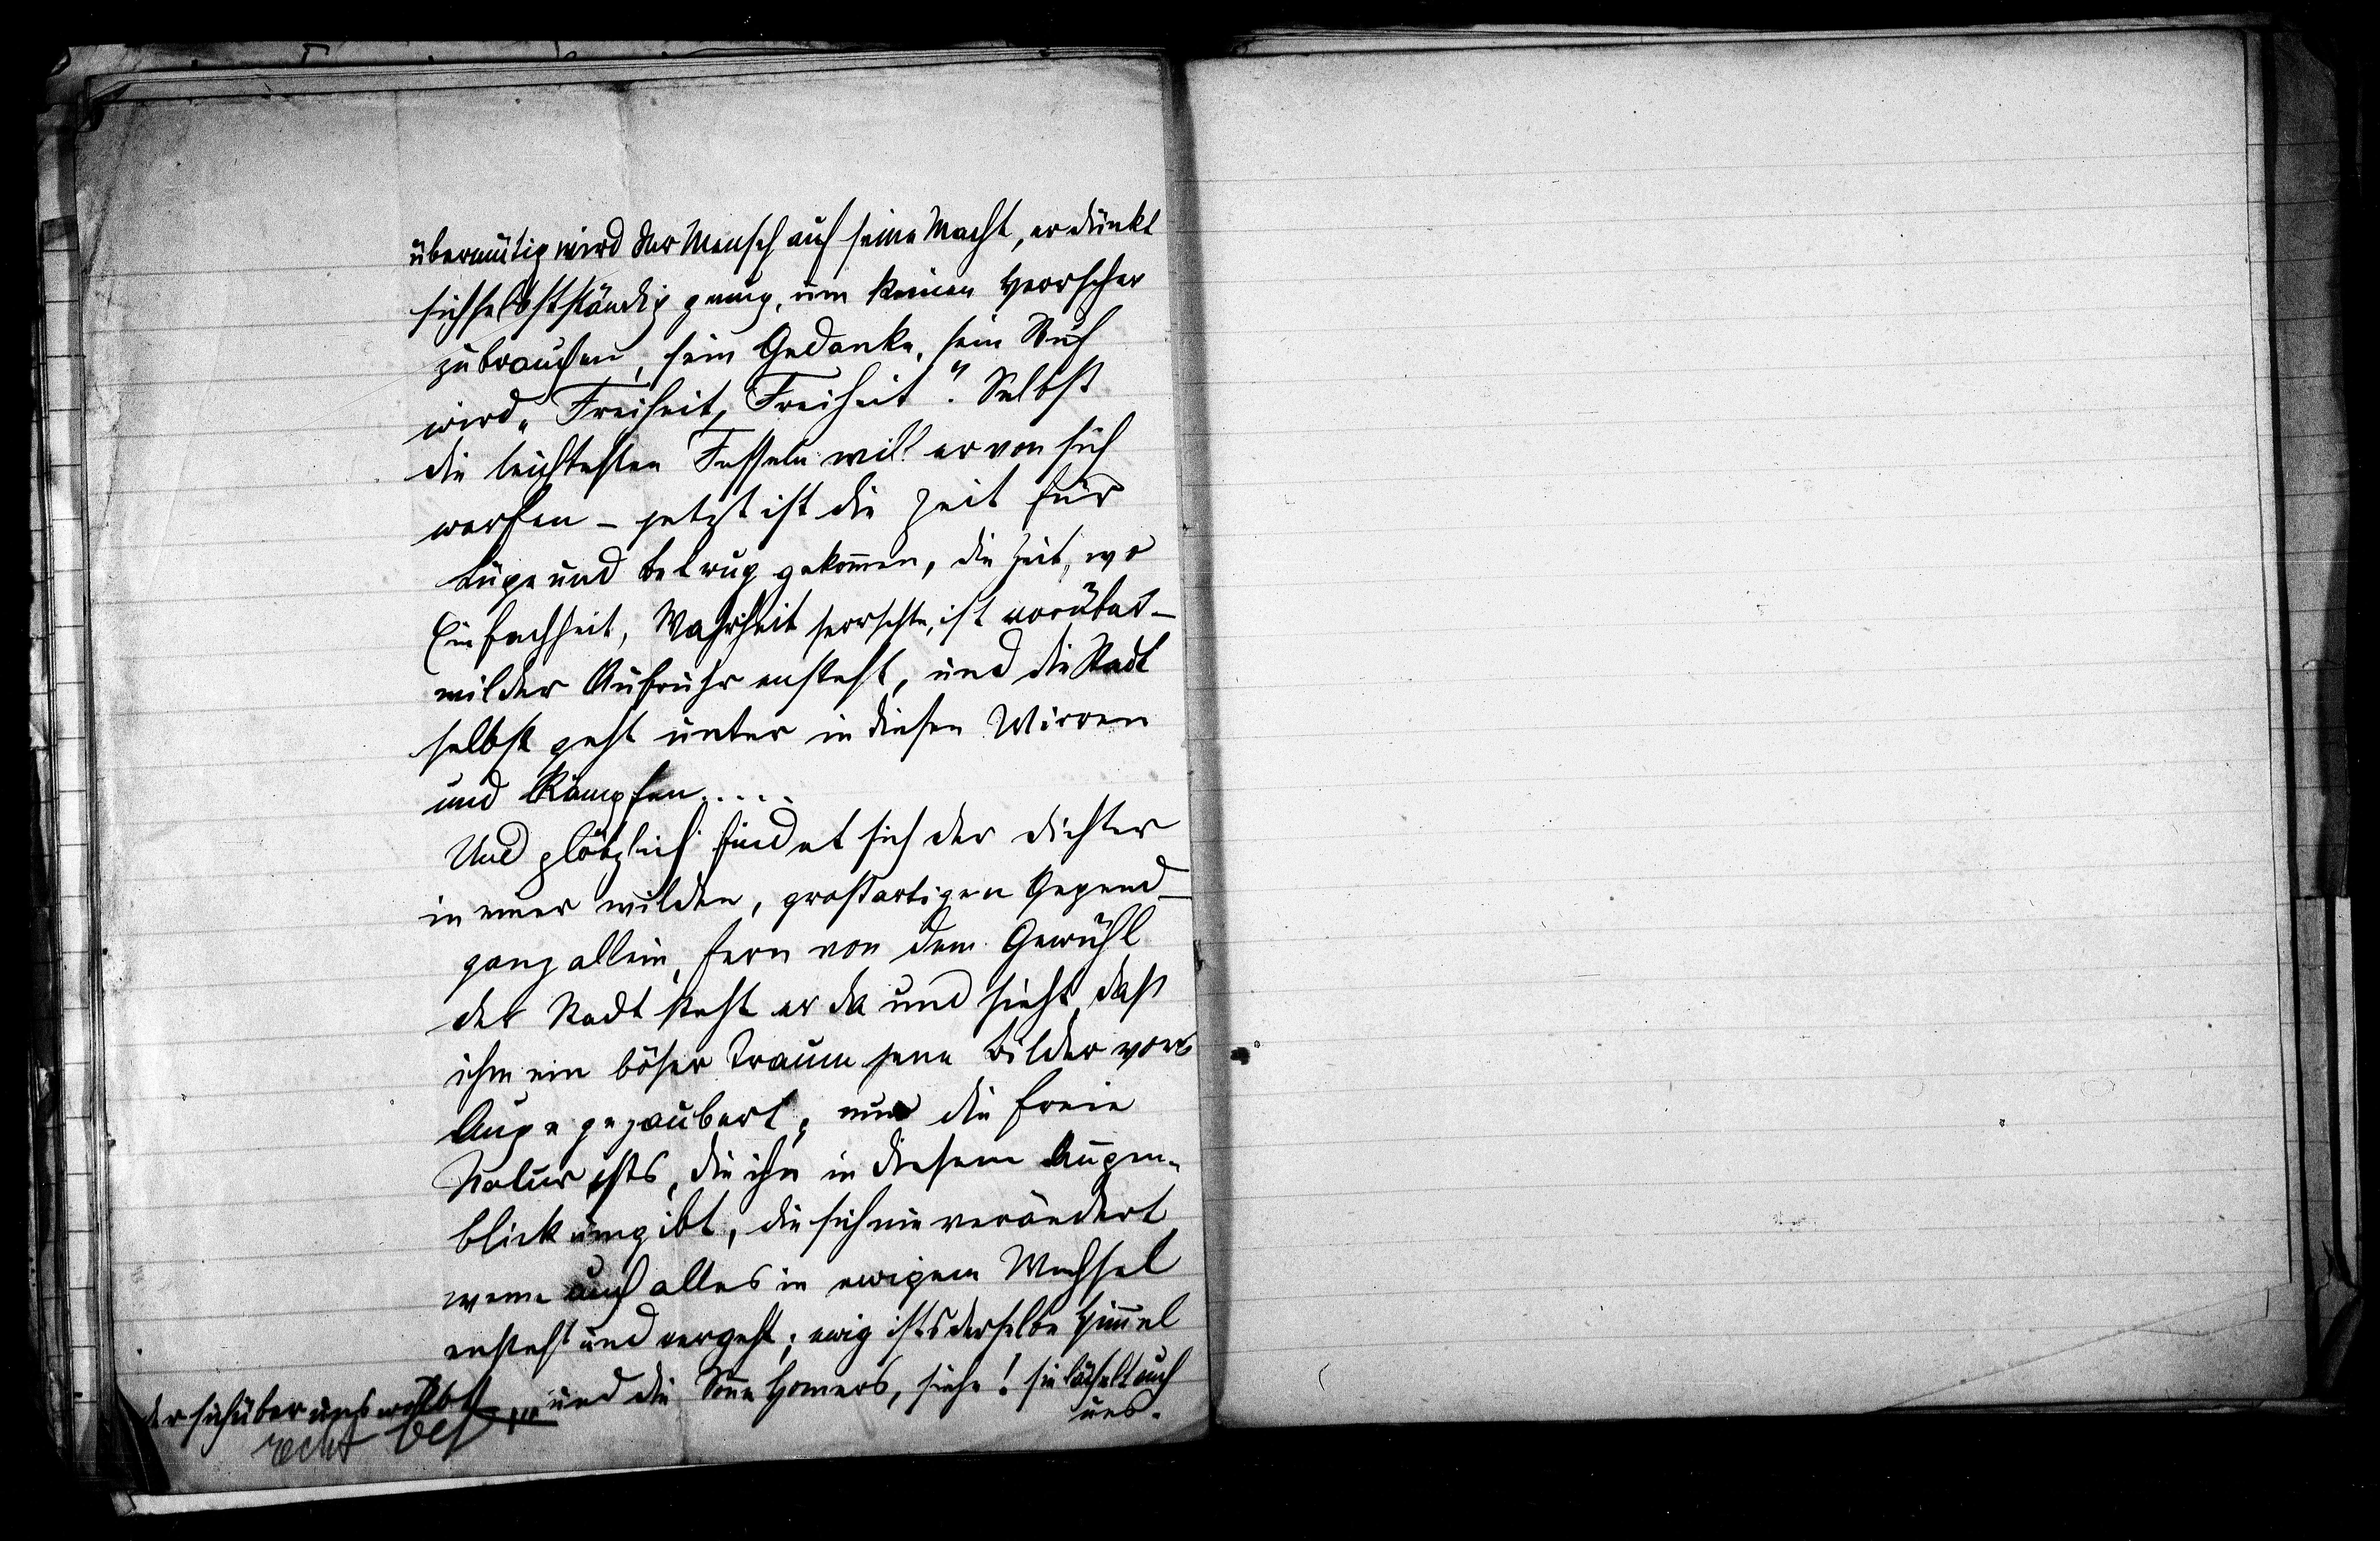 übermütig wird der Mensch auf seine Macht, er dünkt
sich selbstständig genug, um keinen Herrscher
zu brauchen, sein Gedanke, sein Ruf
wird „Freiheit, Freiheit“. Selbst
die leichtesten Fesseln will er von sich
werfen – jetzt ist die Zeit für
Lüge und Betrug gekom̄en, die Zeit, wo
Einfachheit, Wahrheit herrschte, ist vorüber –
wilder Aufruhr ensteht, und die Stadt
selbst geht unter in diesen Wirren
und Kämpfen.....
Und plötzlich findet sich der Dichter
in einer wilden, großartigen Gegend –
ganz allein, fern von dem Gewühl
der Stadt steht er da und sieht, daß
ihm ein böser Traum jene Bilder vors
Auge gezaubert; nur die freie
Natur ists, die ihn in diesem Augen-
blick umgibt, die sich nie verändert
wenn auch alles in ewigem Wechsel
ensteht und vergeht; ewig ists derselbe Him̄el
der sich über uns wölbt „und die Son̄e Homers, siehe! sie lächelt auch
uns.
recht bef